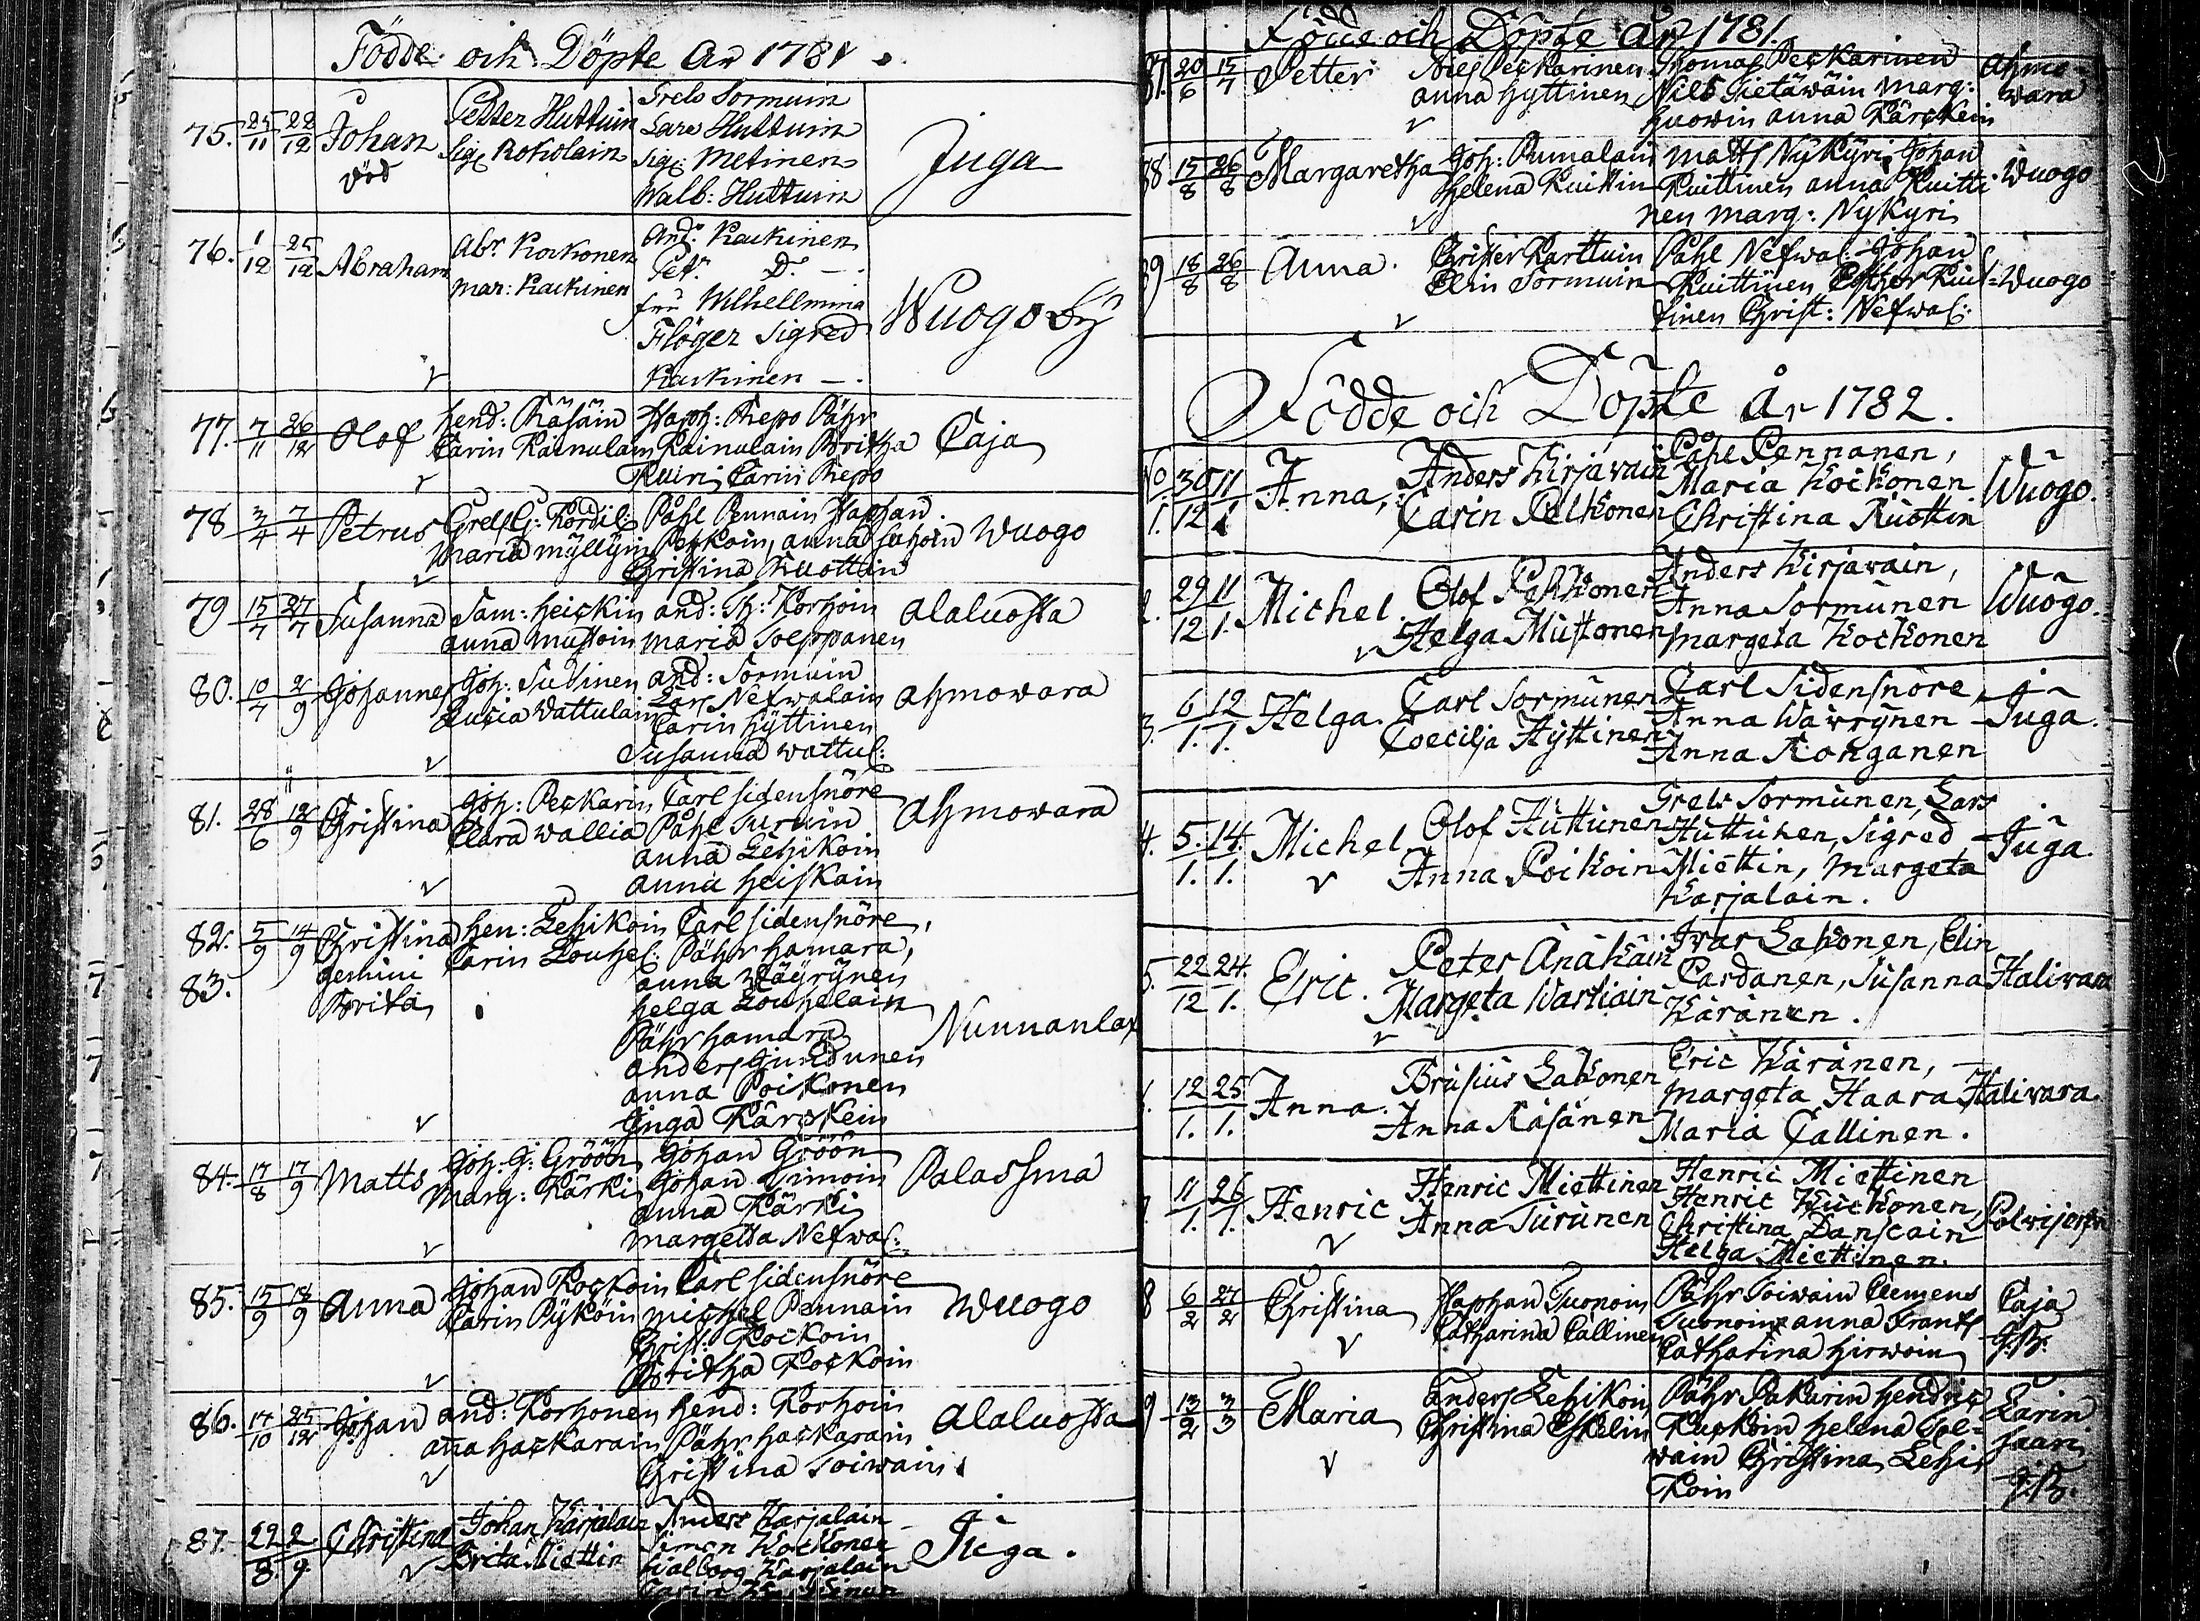 Födde och Döpte År 1781.
75. 25/11 28/12 Johan Petter Huttuin Grels Sormuin
Sig: Koholain Lars Huttuin Juga
död Sig: Metinen
Walb: Huttuin
76. 1/12 25/12 Abraham Abr. Kockonen And. Kackinen
Mar: Kackinen Pet. D. —.
fru Wilhellmina Wuogo by
Flöger Sigred
Kackinen —.
77. 7/11 26/12 Olof hend: Räsäin Staph: Repo Påhr
Carin Rainulain Rainulain Britha Caja
Carin Repo
78 3/4 7/4 Petrus Påhl Pennain Staphan
Maria Myllyin anna Wuogo
Christina Ruottin
79 15/7 27/7 Susanna Sam: heickin and: Th: Korhoin alaluosta
anna Mustoin maria Soeppanen
80. 10/7 2/9 Johannes Joh: Sutinen and: Sormuin
Lucia Wattulain Lars Nefwalain ahmowara
Carin Hyttinen
Susanna wattul:
81. 28/6 12/9 Christina Joh: Peckarin Carl Sidensnöre
Clara Wallia Påhl Turuin ahmowara
anna Lehikoin
anna heiskain
82. 5/9 14/9 Christina hen: Lehikoin Carl Sidensnöre,
gemini Carin Louhel: Påhr hamara,
83. Brita anna Wäyrynen
helga Louhelain
Påhr hamara Nunnanlax
anders
anna Poikonen
Inga Kärckein
84. 17/8 17/9 Matts Joh: G: Gröön Johan Gröön
Marg: Kärki Johan Timoin Palasma
anna Kärki
Margetta Nefwal:
85. 15/9 18/9 Anna Johan Kockoin Carl Sidensnöre
Carin Pyköin Michel Pennain Wuogo
Christ: Kockoin
Britha Kockoin
86. 14/10 25/12 Johan and: Korhonen hend: Korhoin
aña hackarain Påhr hackarain Alaluosta
Christina Toiwain
87. 22/8. 2/9. Christina Johan Karjalain Anders Karjalain
Brita Miettin Simon Kockonen Juga.
Walborg Karjalain
Carin
Födde och Döpte År 1781.
87. 20/6 15/7 Petter Niels Peckarinen Thomas Peckarinen Ahmo-
anna Hyttinen Nils Sietäwäin Marg: wara
huowin anna Kärckein
88 15/8 26/8 Margaretha Joh: Pumalain Matts Nykyri Johan
Helena Ruittin Ruittinen anna Ruitti Wuogo
nen Marg: Nykyri
89 18/8 26/8 Anna. Christer Karttuin Påhl Nefwal: Johan
Elin Sormuin Ruittinen Esther Ruit= Wuogo
tinen Christ: Nefwal:
Födde och Döpte År 1782.
No 1. 30/12 11/1 Anna, Anders Kirjavain Påhl Pennanen,
Carin Pelkonen Maria Kockonen Wuogo.
Christina Ruottin
2. 29/12 11/1. Michel Olof Pehkonen Anders Kirjavain,
Helga Mustonen Anna Sormunen Wuogo.
Margeta Kockonen
3. 6/1. 12/1. Helga. Carl Sormunen Carl Sidensnöre,
Coecilia Hyttinen Anna Wäyrynen Juga.
Anna Ronganen
4. 5./1. 14./1. Michel. Olof Huttunen Grels Sormunen, Lars
Anna Poikoin Huttunen, Sigred Juga.
Miettin, Margeta
Karjalain.
5. 22/12 24./1. Eric. Peter Anakain Ivar Lakonen, Elin
Margeta Wartiain Pardanen, Susanna Halivara
Käränen.
12/1. 25/1. Anna. Brusius Lakonen Eric Käränen,
Anna Räsänen Margeta Haara Halivara.
Maria Callinen.
11/1. 26/1. Henric Henric Miettinen Henric Miettinen
Anna Turunen Henric Kuckonen, Polvijervi
Christina Danscain
Helga Miettinen.
8 6/2 27/2 Christina Staphan Tuonoin Påhr Toiwain Clemens Caja
Catharina Callinen Tuonoin anna Frants
Catharina Hirwoin
9 13/2 3/3 Maria Anders Lehikoin Påhr Pakarin hendric Larin
Christina Eskelin Kuckoin Helena Toi= saari
wain Christina Lehi
Koin